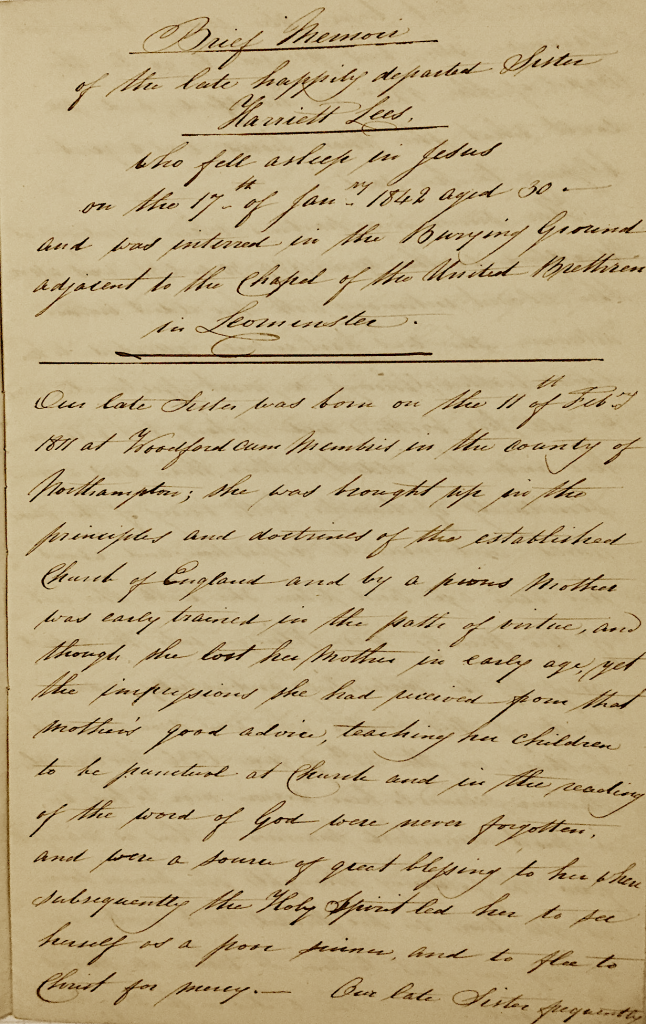 Brief Memoir
of the late happily departed Sister
Harriett Lees,
who fell asleep in Jesus
on the 17th of Janry 1842 aged 30.—
and was interred in the Burying Ground
adjacent to the Chapel of the United Brethren
in Leominster.
Our late Sister was born on the 11th of Febry
1811 at Woodford cum Membris in the county of
Northampton; she was brought up in the
principles and doctrines of the established
Church of England and by a pious Mother
was early trained in the paths of virtue, and
though she lost her Mother in early age, yet
the impressions she had received from that
Mother's good advice, teaching her children
to be punctual at Church and in the reading
of the word of God were never forgotten,
and were a source of great blessing to her when
subsequently the Holy Spirit led her to see
herself as a poor sinner, and to flee to
Christ for mercy.— Our late Sister frequently